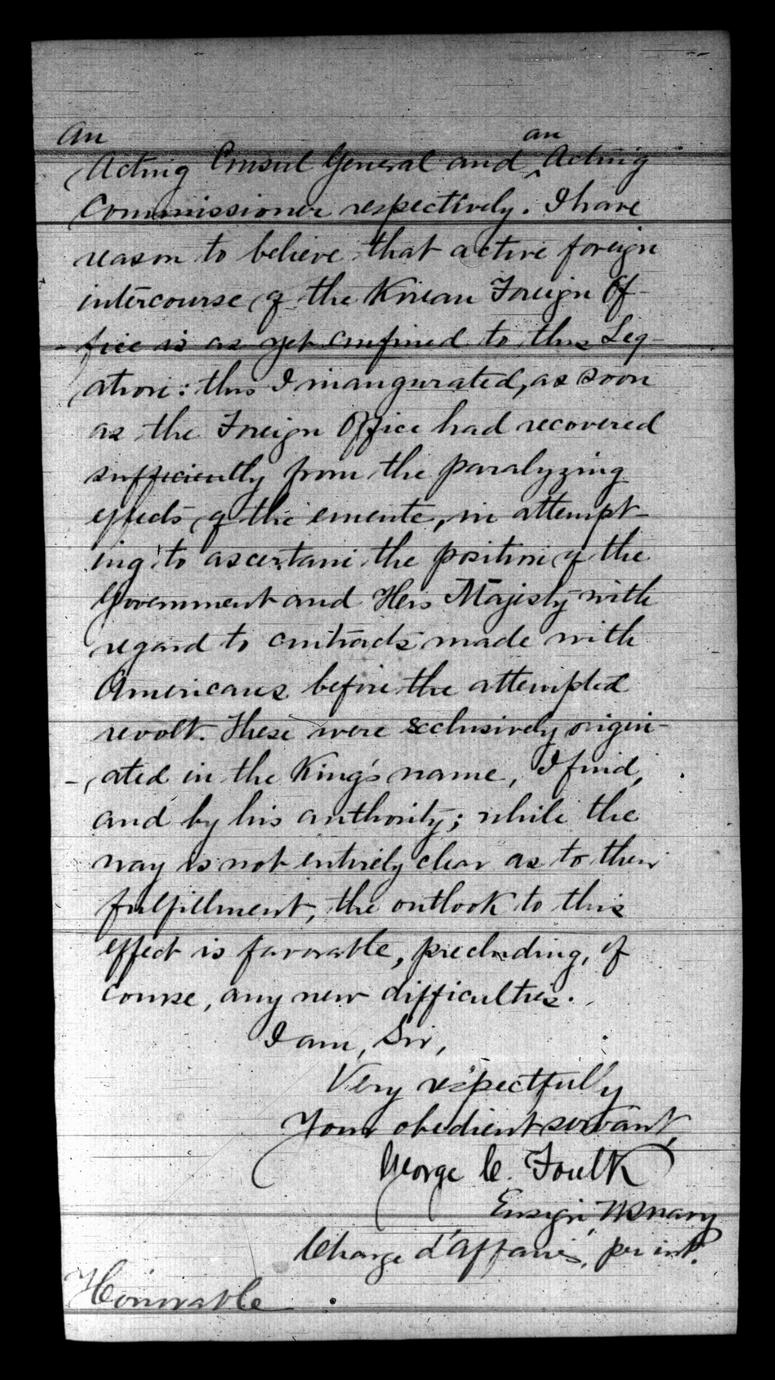 An an
Acting Consul General and Acting
Commissioner respectively. I have
reason to believe that active foreign
intercourse of the Korean Foreign Of-
fice is as yet confined to this Leg-
ation: this I inaugurated, as soon
as the Foreign Office had recovered
sufficiently from the paralyzing
effects of the emeute, in attempt-
ing to ascertain the position of the
Government and His Majesty with
regard to contracts made with
Americans before the attempted
revolt. These were exclusively origin-
ated in the King's name, I find,
and by his authority; while the
way is not entirely clear as to their
fulfillment, the outlook to this
effect is favorable, precluding, of
course, any new difficulties.
I am, Sir,
Very respectfully
Your obedient servant,
George C. Foulk
Ensign U.S. Navy
Chargé d'Affaires, per int.
Honorable